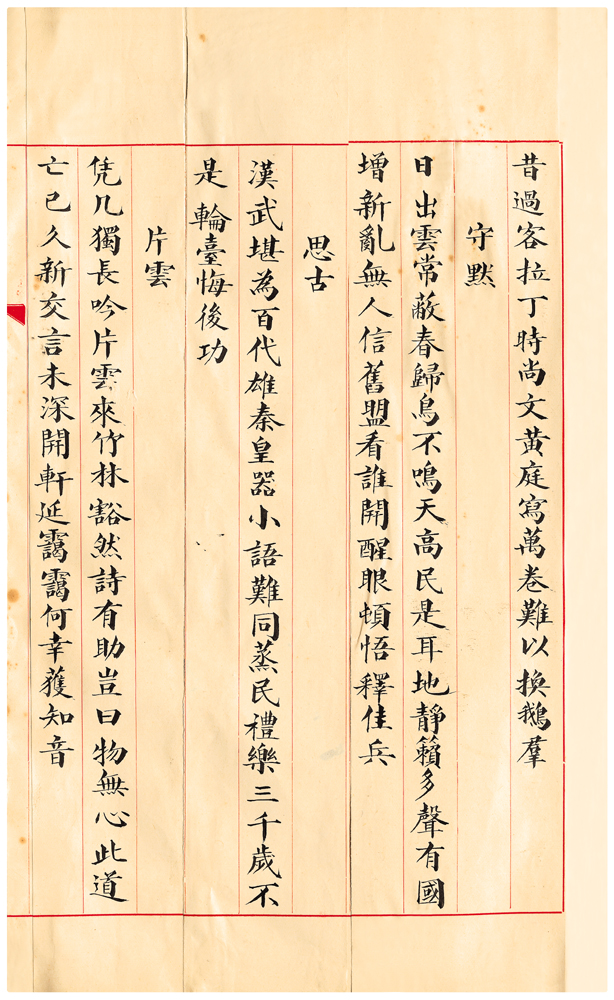 昔過客拉丁時尚文黃庭寫萬卷難以換鵝羣
守默
日出雲常蔽春歸鳥不鳴天高民是耳地靜籟多聲有國
增新亂無人信舊盟看誰開醒眼頓悟釋佳兵
思古
漢武堪為百代雄秦皇器小語難同蒸民禮樂三千歲不
是輪臺悔後功
片雲
凭几獨長吟片雲來竹林豁然詩有助豈曰物無心此道
亡已久新交言未深開軒延靄靄何幸獲知音